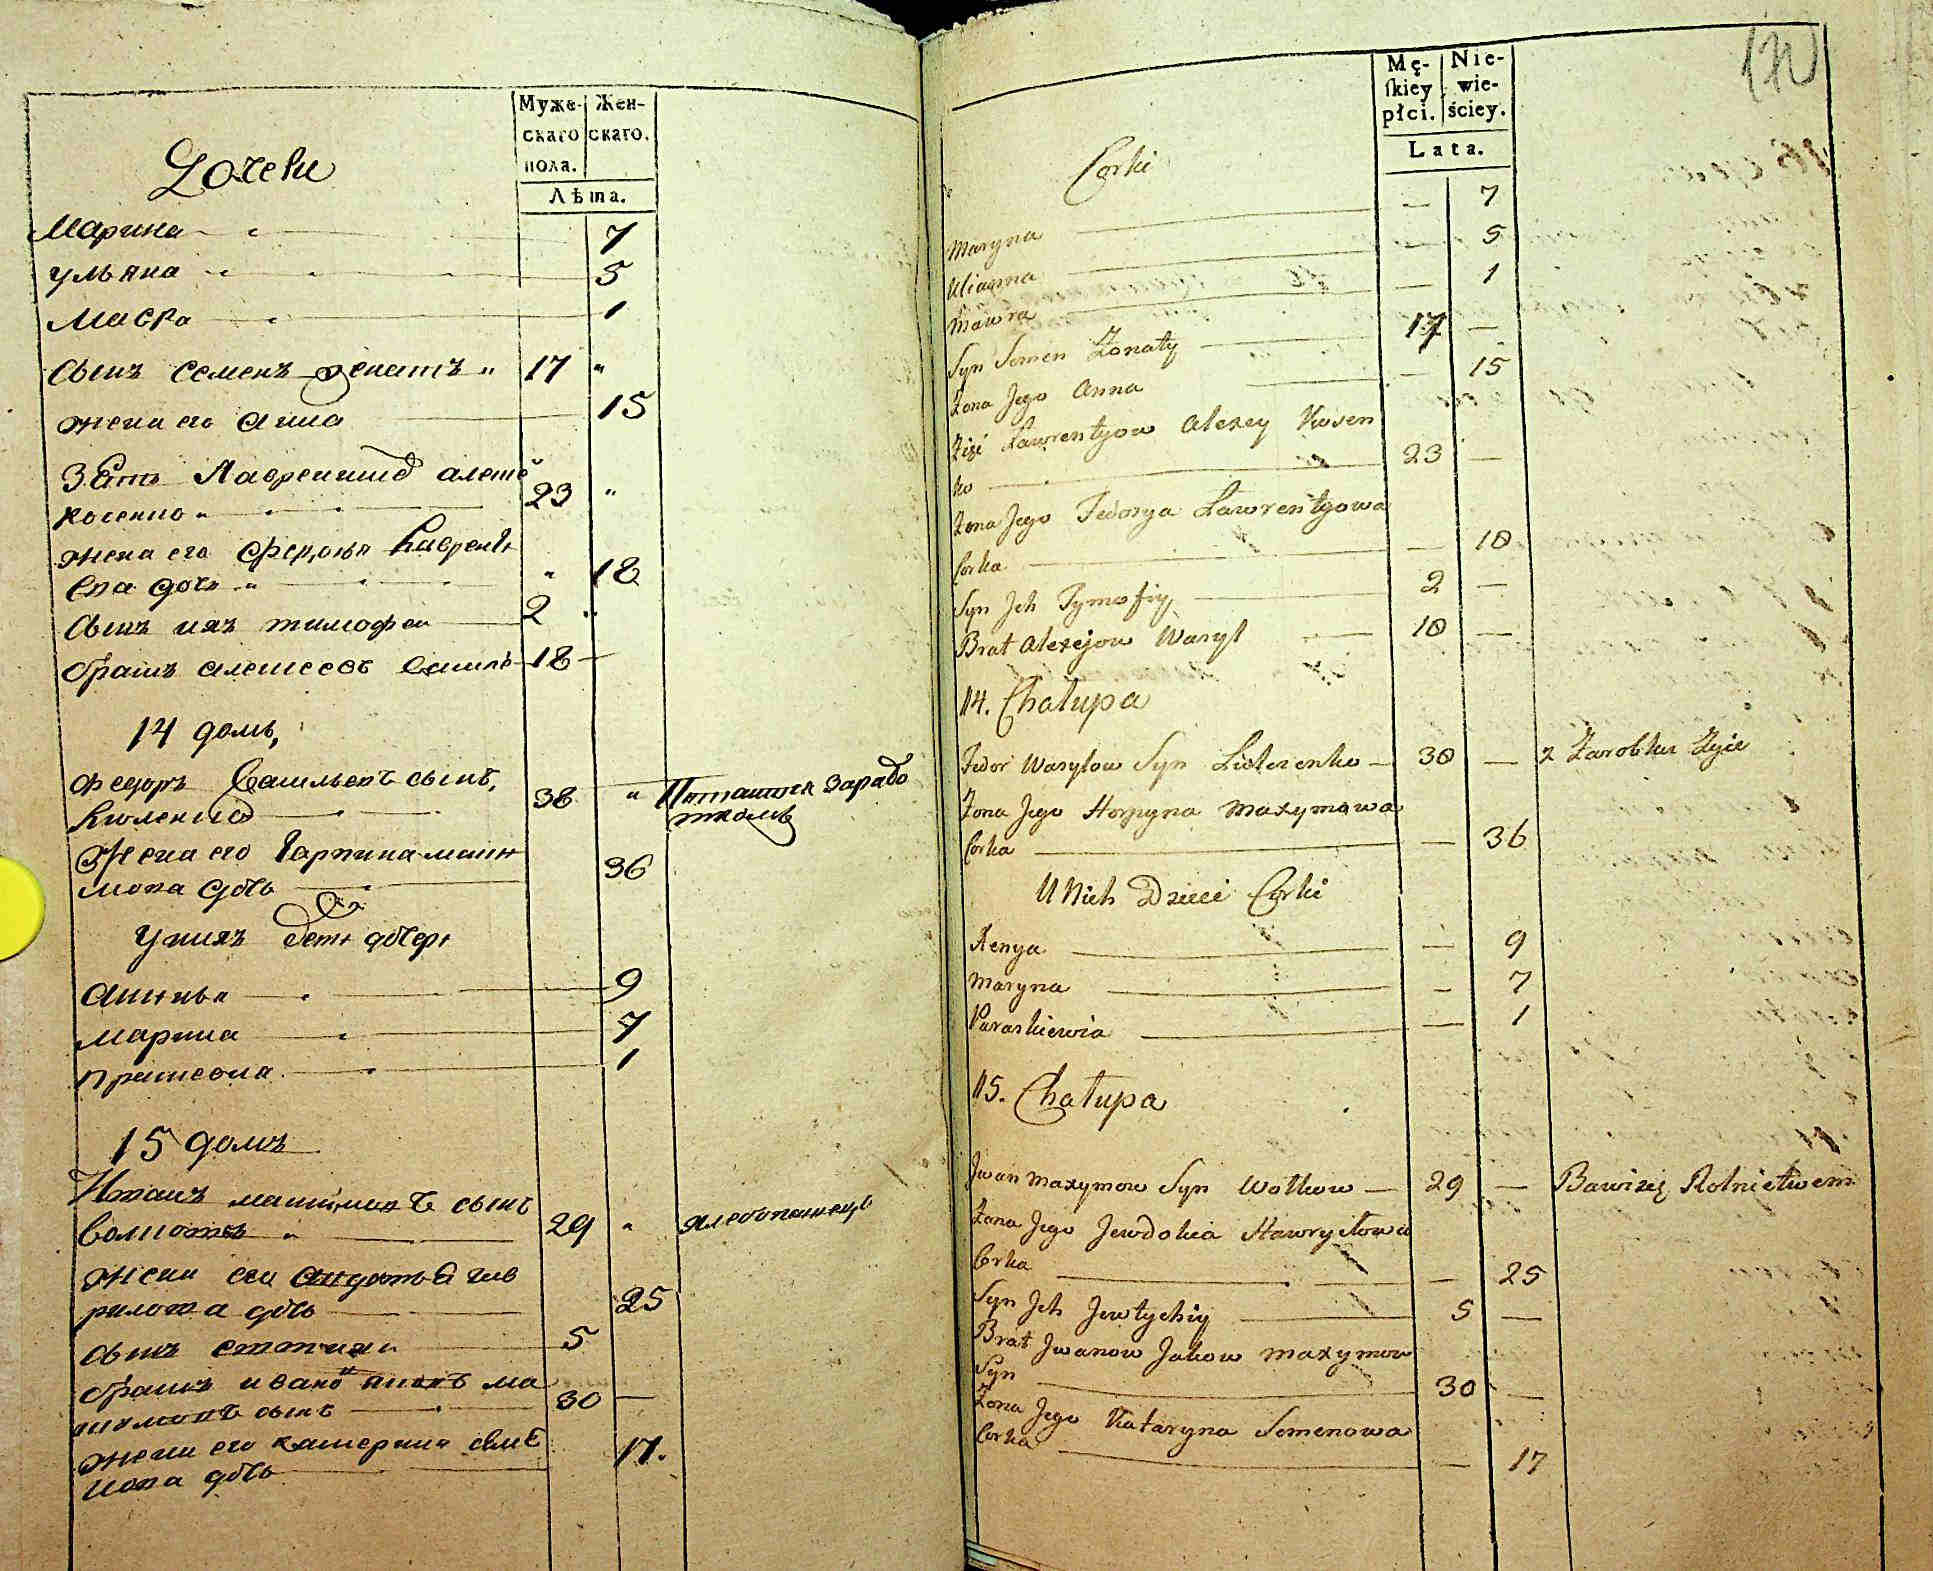 Муже-
скаго
пола.
Жен-
скаго.
Лѣта.
Дочеки
Марина 7
Ульяна 5
Мавра 1
Сынъ Семенъ женатъ 17 "
Жена его Анна 15
Зять Лаврентиев Алексей
Косенко 23 "
Жена его Федосья Лаврентя
ева дочь " 18
Сынъ ихъ тимофеи 2 "
братъ алексеевъ василь 18
14 домъ,
Федоръ Васильевъ сынъ,
38 " Питаится зарабо
ткомъ
Жена его Гарпина макси
мова дочь 36
у нихъ дети дочери
9
марина 7
Прасковия 1
15 домъ
Иванъ максимовъ сынъ
Волковъ 29 " хлебопашецъ
Жена его Авдотья гав
рилова дочь 25
сынъ 5
братъ ивановъ ма
ксимовъ сынъ 30
жена его катерина семе
нова дочь 17.
Mę-
skiey
płci.
Nie-
wie-
ściey.
Lata.
Corki
Maryna 7
Ulianna 5
Mawra 1
Syn Semen Żonaty 17
Żona Jego Anna 15
Zięć Ławrentyow Alexey Kosen
ko 23
Żona Jego Fedosya Ławrentyowa
Corka 18
Syn Jch Tymofiy 2
Brat Alexejow Wasyl 18
14. Chałupa
Fedor Wasylow Syn 38 z Zarobku Żyie
Żona Jego Horpyna Maxymowa
Corka 36
U Nich Dzieci Corki
Xenya 9
Maryna 7
Paraskiewia 1
15. Chałupa
Jwan Maxymow Syn Wołkow 29 Bawi się Rolnictwem
Żona Jego Jewdokia Hawryłowa
Corka 25
Syn Jch Jewtychiy 5
Brat Jwanow Jakow Maxymow
Syn 30
Żona Jego Kataryna Semenowa
Corka 17